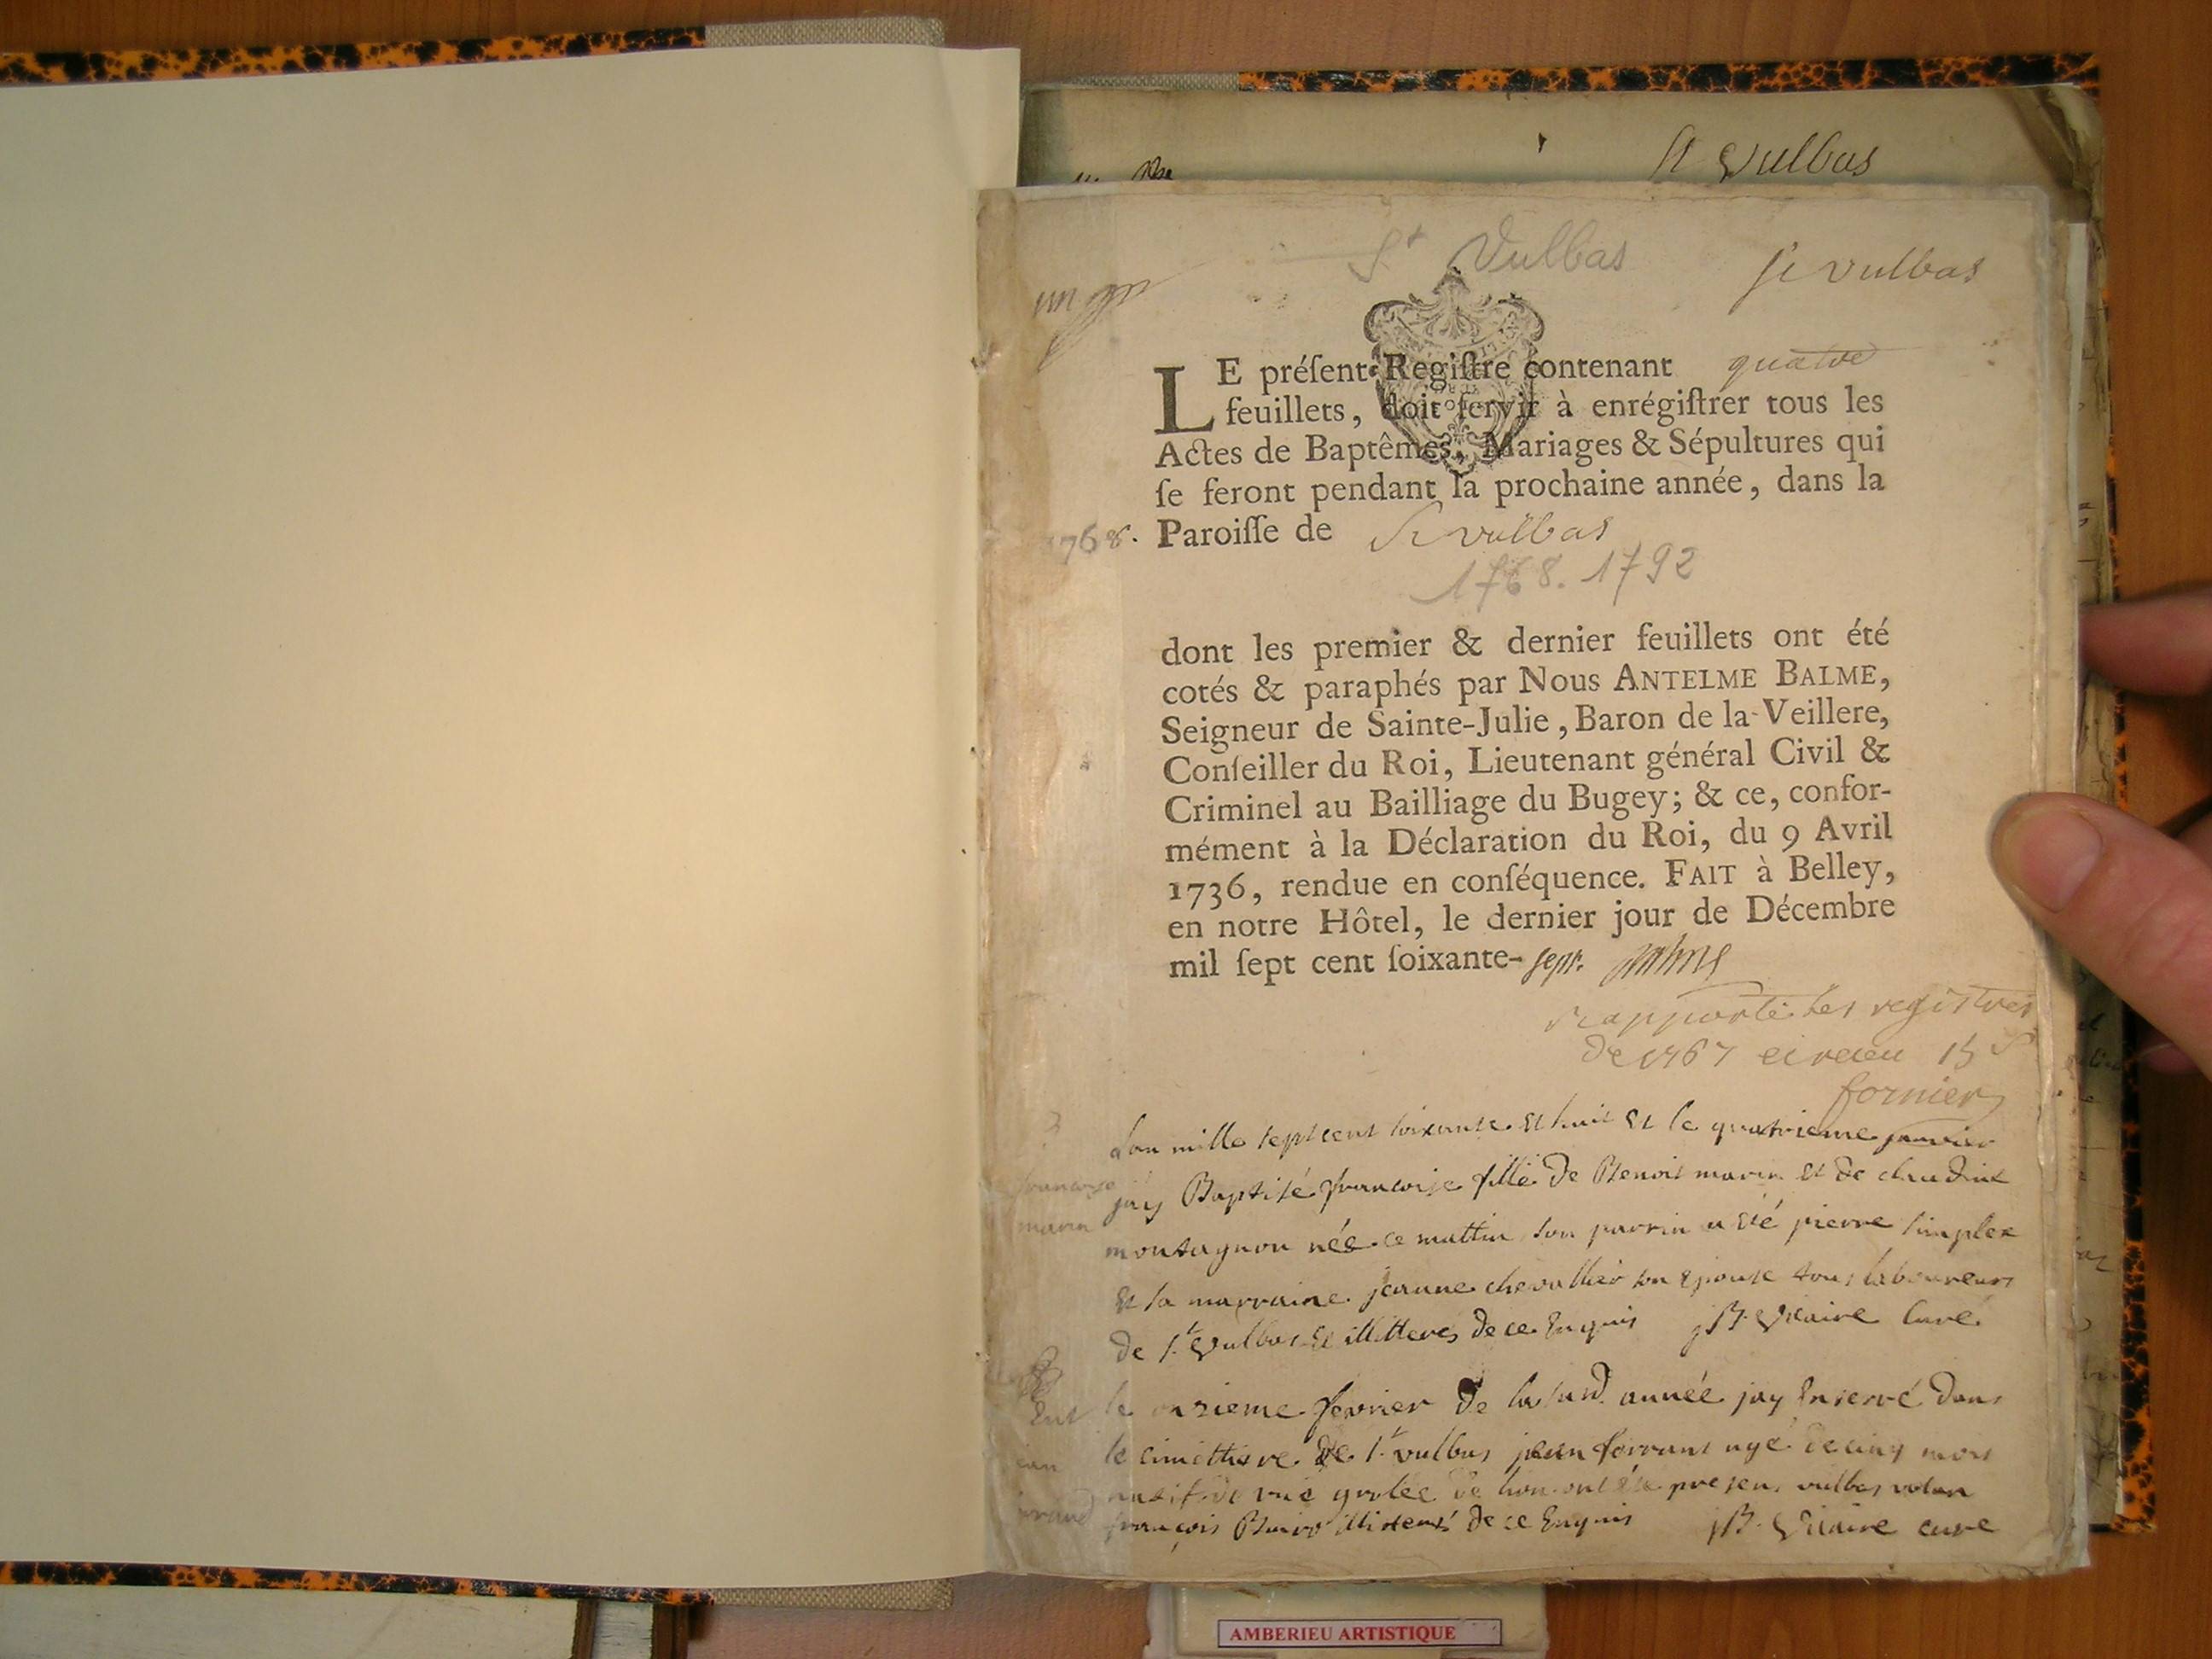 St Vulbas
St Vulbas
st vulbas
LE préſent Regiſtre contenant quatre
feuillets, doit ſervir à enrégiſtrer tous les
Actes de Baptêmes, Mariages & Sépultures qui
ſe feront pendant la prochaine année, dans la
1768. Paroiſſe de St vulbas
1768. 1792
dont les premier & dernier feuillets ont été
cotés & paraphés par Nous ANTELME BALME,
Seigneur de Sainte-Julie, Baron de la Veillere,
Conſeiller du Roi, Lieutenant général Civil &
Criminel au Bailliage du Bugey; & ce, confor-
mément à la Déclaration du Roi, du 9 Avril
1736, rendue en conſéquence. FAIT à Belley,
en notre Hôtel, le dernier jour de Décembre
mil ſept cent ſoixante-sept.
rapporté les registres
de 1767 et receu 15 s
fornier
Lan mille sept cent soixante et huit et le quatrieme janvier
françoise
jay Baptisé françoise fille de Benoit marin et de claudine
marin
montagnon née ce mattin son parrin a été pierre simplex
et sa marraine jeanne chevallier son epouse tous laboureurs
de st Vulbas et illitteres de ce Enquis jB. Vicaire Curé
Ent
le onzieme fevrier de la susd. année jay Enterré dans
le cimettiere de st vulbas jean ferrant agé de cinq mois
de lion ont été presens vulbas volan
françois illiteres de ce Enquis jB. Vicaire curé
AMBERIEU ARTISTIQUE